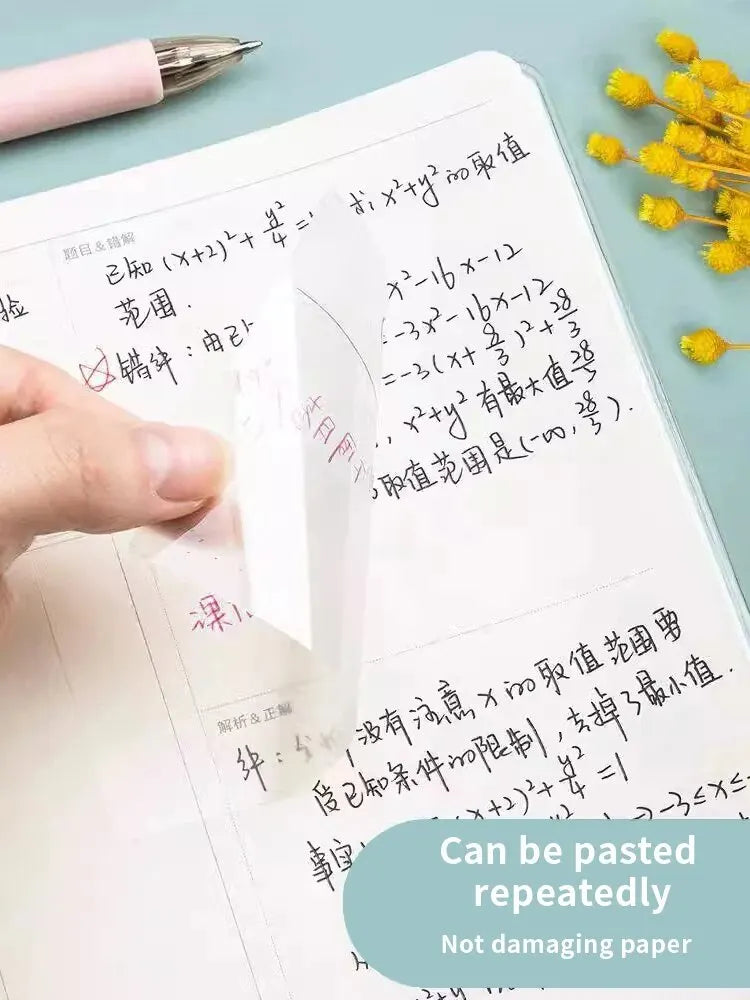 题目&错解
已知(x+2)²+y²/4=1 求x²+y²的取值
验
范围.
x²-16x-12
错解：由已
=-3x²-16x-12
=-3(x+8/3)²+28/3
x²+y²有最大值28/3
取值范围是(-∞,28/3).
课
没有注意x的取值范围要
解析&正解
解：分析
受已知条件的限制,去掉了最小值.
事实
(x+2)²+y²/4=1
-3≤x≤-
Can be pasted
repeatedly
Not damaging paper